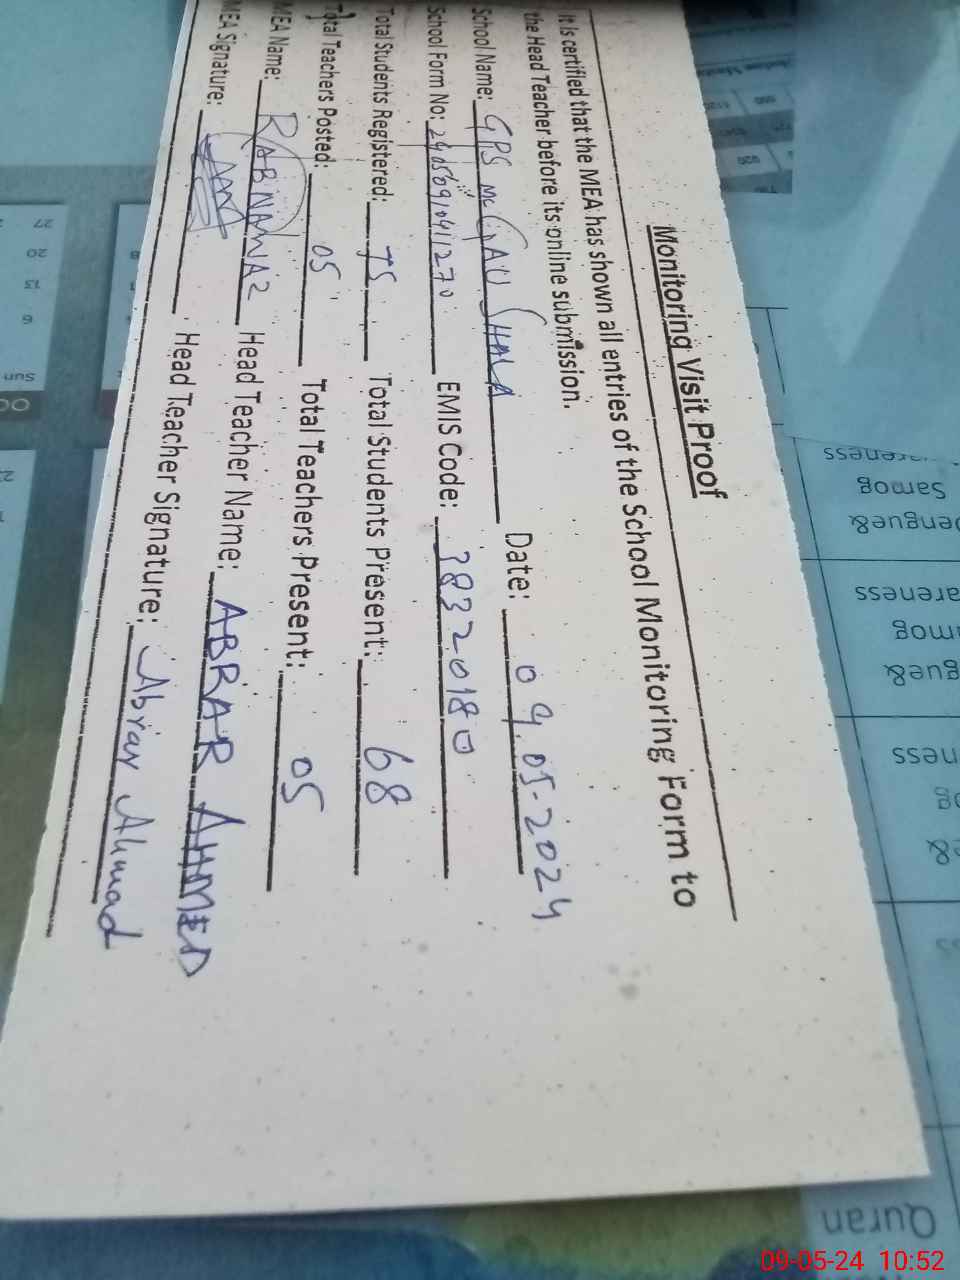 Monitoring Visit Proof
It is certified that the MEA has shown all entries of the School Monitoring Form to
the Head Teacher before its online submission.
School Name: GPS MC GAU SHALA Date: 09.05-2024
School Form No: EMIS Code: 38320180
Total Students Registered: 75 Total Students Present: 68
Total Teachers Posted: 05 Total Teachers Present: 05
MEA Name: RAB NAWAZ Head Teacher Name: ABRAR AHMED
MEA Signature: Head Teacher Signature: Abrar Ahmad
Quran
09-05-24 10:52